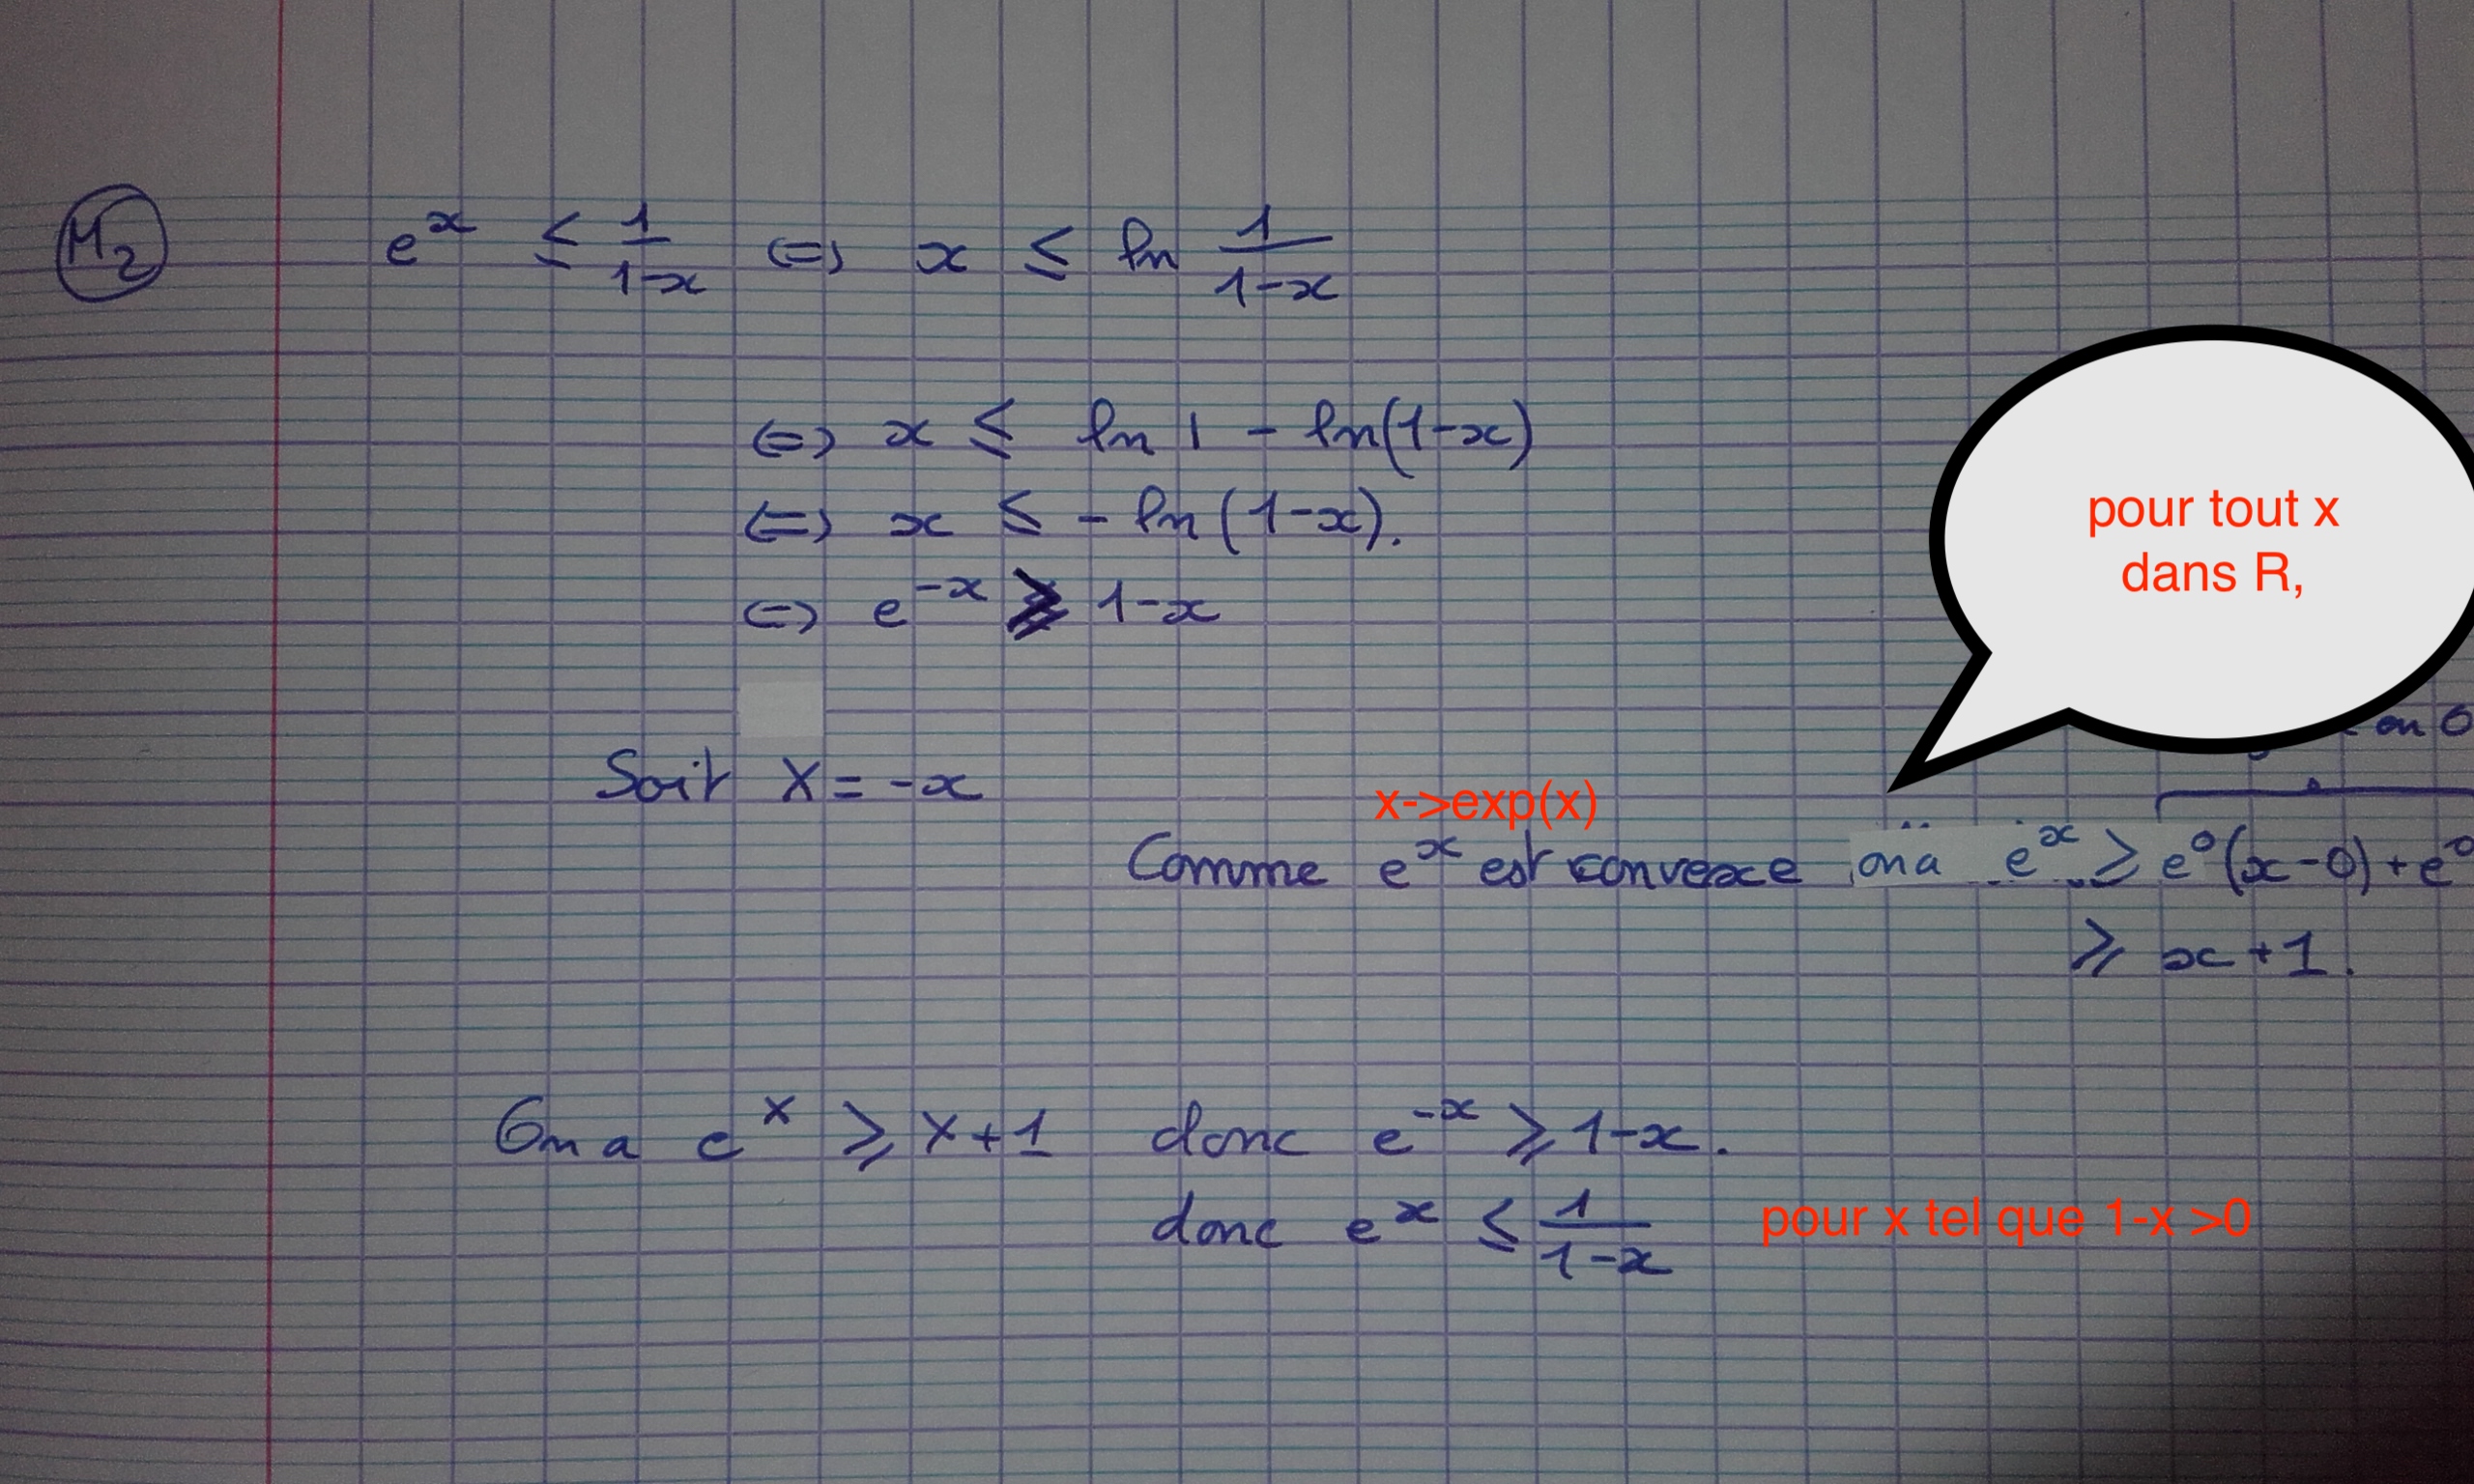 M2 e^x ≤ 1/(1-x) (=) x ≤ ln 1/(1-x)
(=) x ≤ ln 1 - ln(1-x)
(=) x ≤ - ln(1-x).
(=) e^-x ≥ 1-x
pour tout x
dans R,
en 0
Soit X = -x
x->exp(x)
Comme e^x est convexe on a e^x ≥ e^0(x-0) + e^0
≥ x+1.
On a e^X ≥ X+1 donc e^-x ≥ 1-x.
donc e^x ≤ 1/(1-x) pour x tel que 1-x >0